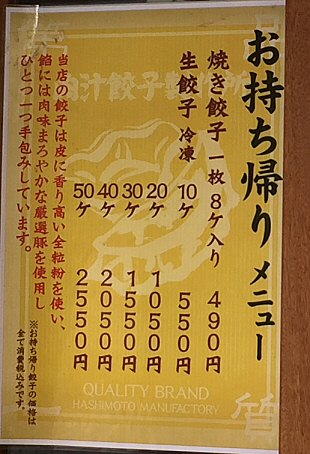 お持ち帰りメニュー
焼き餃子 一枚 8ケ入り 490円
生餃子 冷凍 10ケ 550円
20ケ 1050円
30ケ 1550円
40ケ 2050円
50ケ 2550円
当店の餃子は皮に香り高い全粒粉を使い、
餡には肉味まろやかな厳選豚を使用し
ひとつ一つ手包みしています。
※お持ち帰り餃子の価格は
全て消費税込みです。
肉汁餃子製作所
QUALITY BRAND
HASHIMOTO MANUFACTORY
質